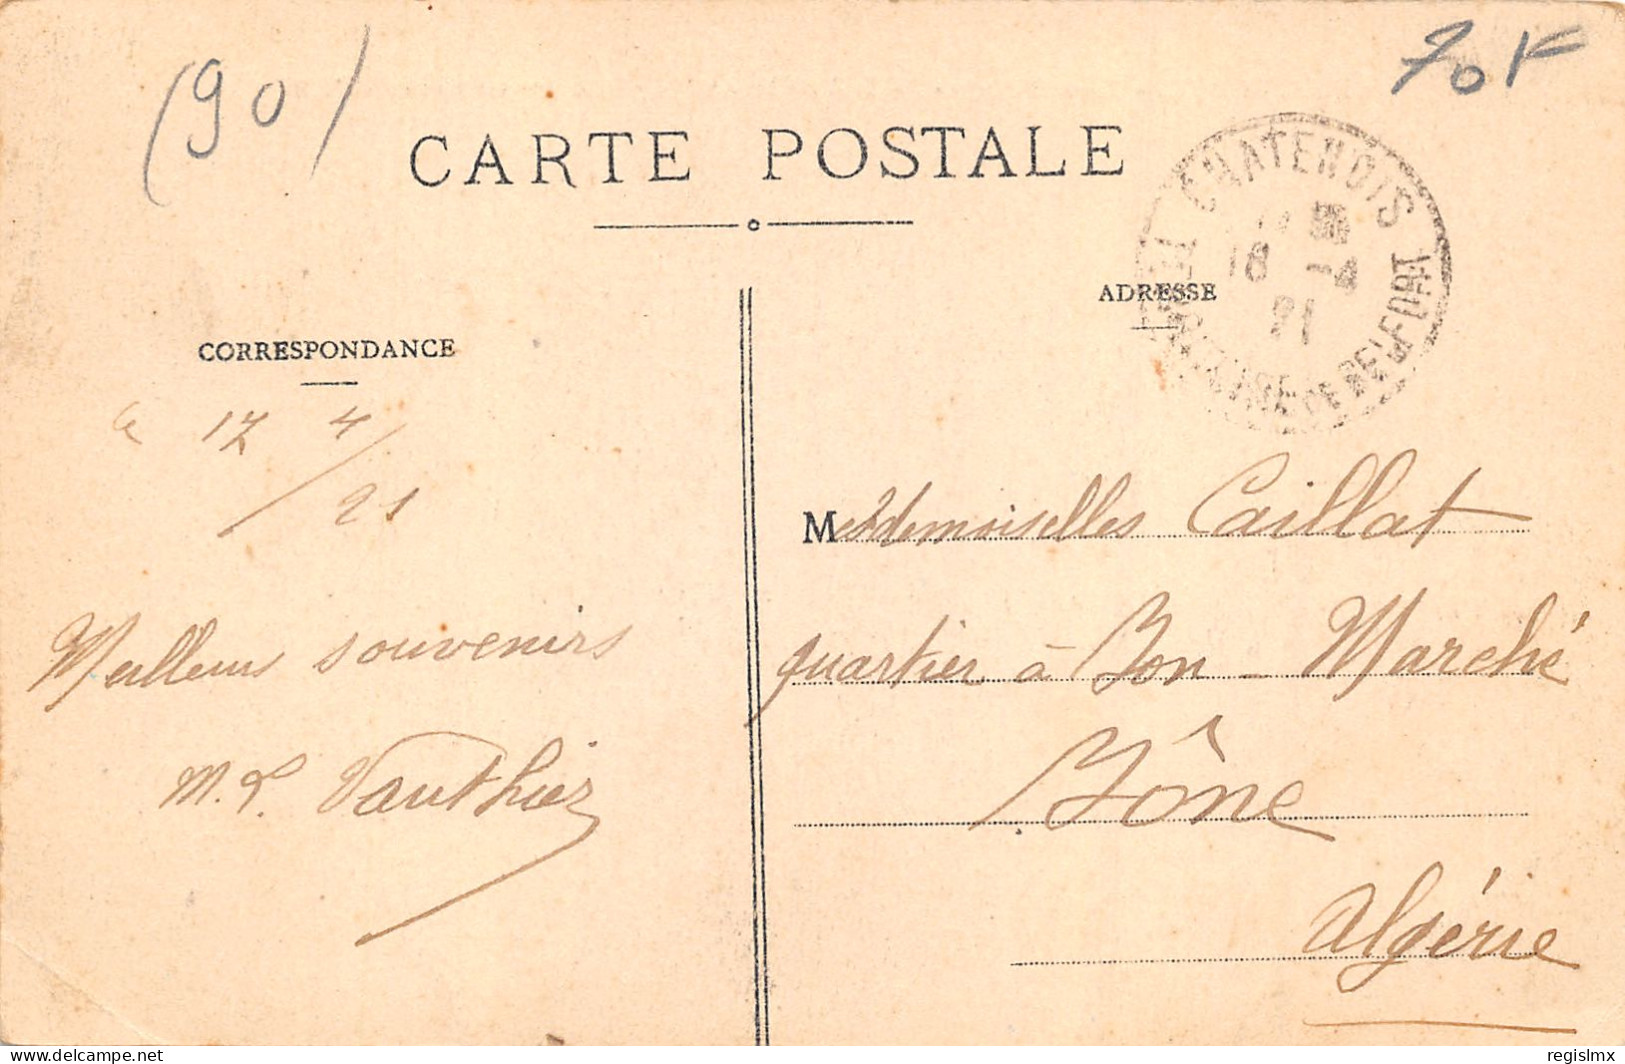 (90)
70F
CARTE POSTALE
CHATENOIS
18 -4
21
TERRITOIRE DE BELFORT
ADRESSE
CORRESPONDANCE
le 17 4
/ 21
Mesdemoiselles Caillat
quartier à Bon - Marché
Meilleurs souvenirs
Bône
M.L. Vauthier
Algérie
Delcampe.net
regislmx